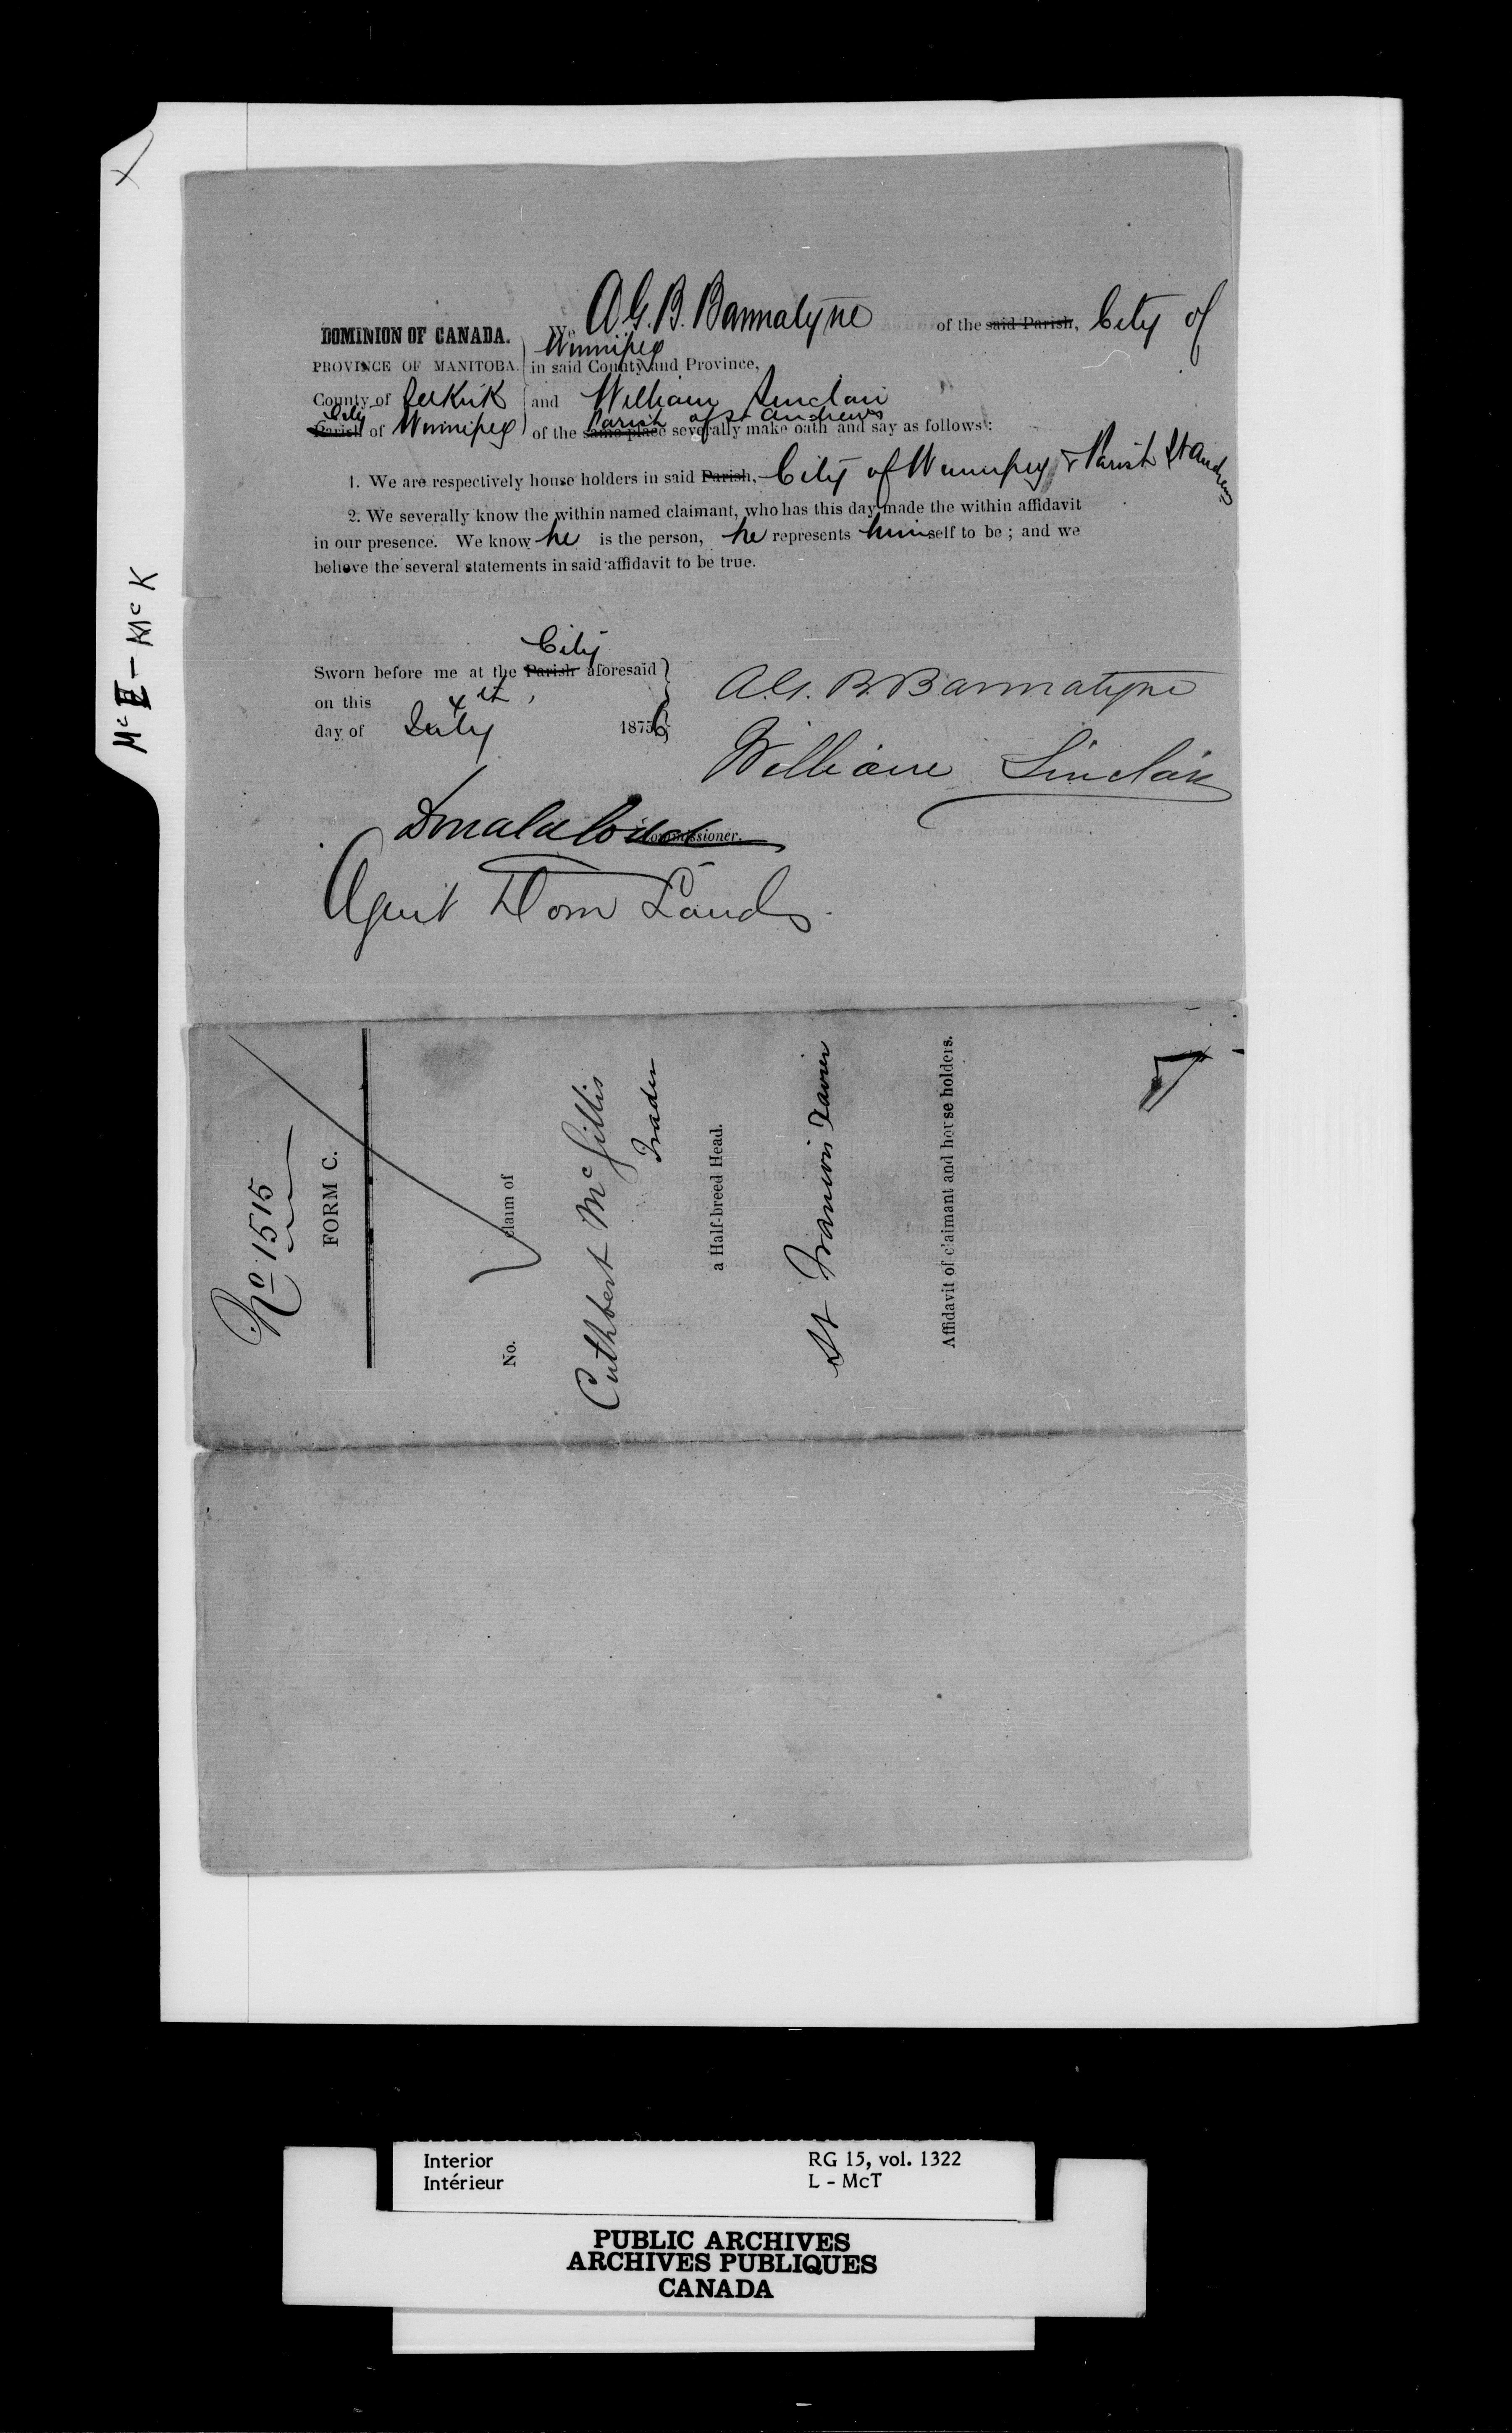 A.G.B. Bannatyne
DOMINION OF CANADA. We of the said Parish, City of
Winnipeg
PROVINCE OF MANITOBA. in said County and Province,
County of Selkirk and William Sinclair
City Parish of St Andrews
Parish of Winnipeg of the same place severally make oath and say as follows:
1. We are respectively house holders in said Parish, City of Winnipeg & Parish St Andrews
2. We severally know the within named claimant, who has this day made the within affidavit
in our presence. We know he is the person, he represents himself to be; and we
believe the several statements in said affidavit to be true.
City
Sworn before me at the Parish aforesaid
on this 4th
day of July 1876
A.G.B. Bannatyne
William Sinclair
Donald Codd
Commissioner.
Agent Dom Lands.
No 1515
FORM C.
No. claim of
Cuthbert McGillis
Trader
a Half-breed Head.
St Francois Xavier
Affidavit of claimant and house holders.
X
McE - McK
Interior RG 15, vol. 1322
Intérieur L - McT
PUBLIC ARCHIVES
ARCHIVES PUBLIQUES
CANADA